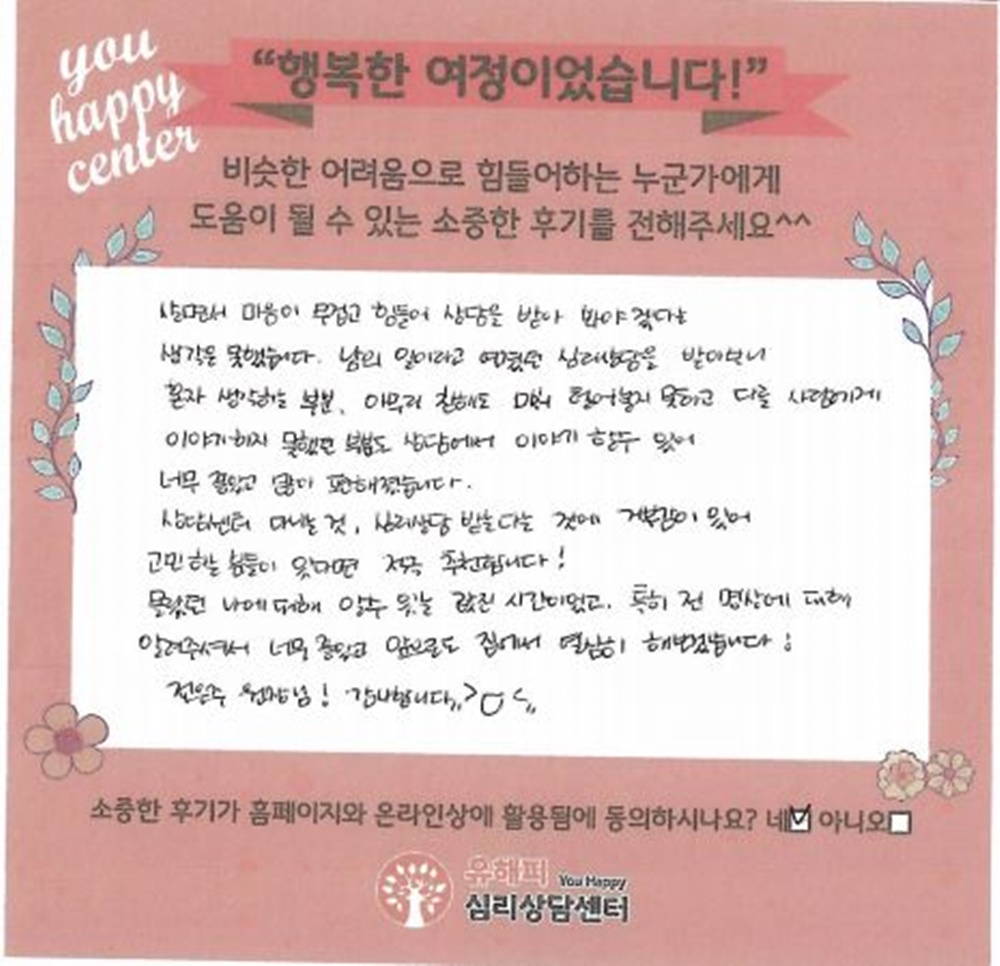 you
happy
center
“행복한 여정이었습니다!”
비슷한 어려움으로 힘들어하는 누군가에게
도움이 될 수 있는 소중한 후기를 전해주세요^^
살면서 마음이 무겁고 힘들어 상담을 받아 봐야겠다는
생각을 못했습니다. 남의 일이라고 여겼던 심리상담을 받아보니
혼자 생각하는 부분, 아무리 친해도 털어놓지 못하고 다를 사람에게
이야기하지 못했던 부분도 상담에서 이야기 할수 있어
너무 좋았고 많이 편해졌습니다.
상담센터 다니는 것, 심리상담 받는다는 것에 거부감이 있어
고민하는 분들이 있다면 적극 추천합니다!
몰랐던 나에 대해 알수 있는 값진 시간이었고, 특히 전 명상에 대해
알려주셔서 너무 좋았고 앞으로도 집에서 열심히 해보겠습니다!
전은주 원장님! 감사합니다
소중한 후기가 홈페이지와 온라인상에 활용됨에 동의하시나요? 네☑ 아니오☐
유해피 You Happy
심리상담센터